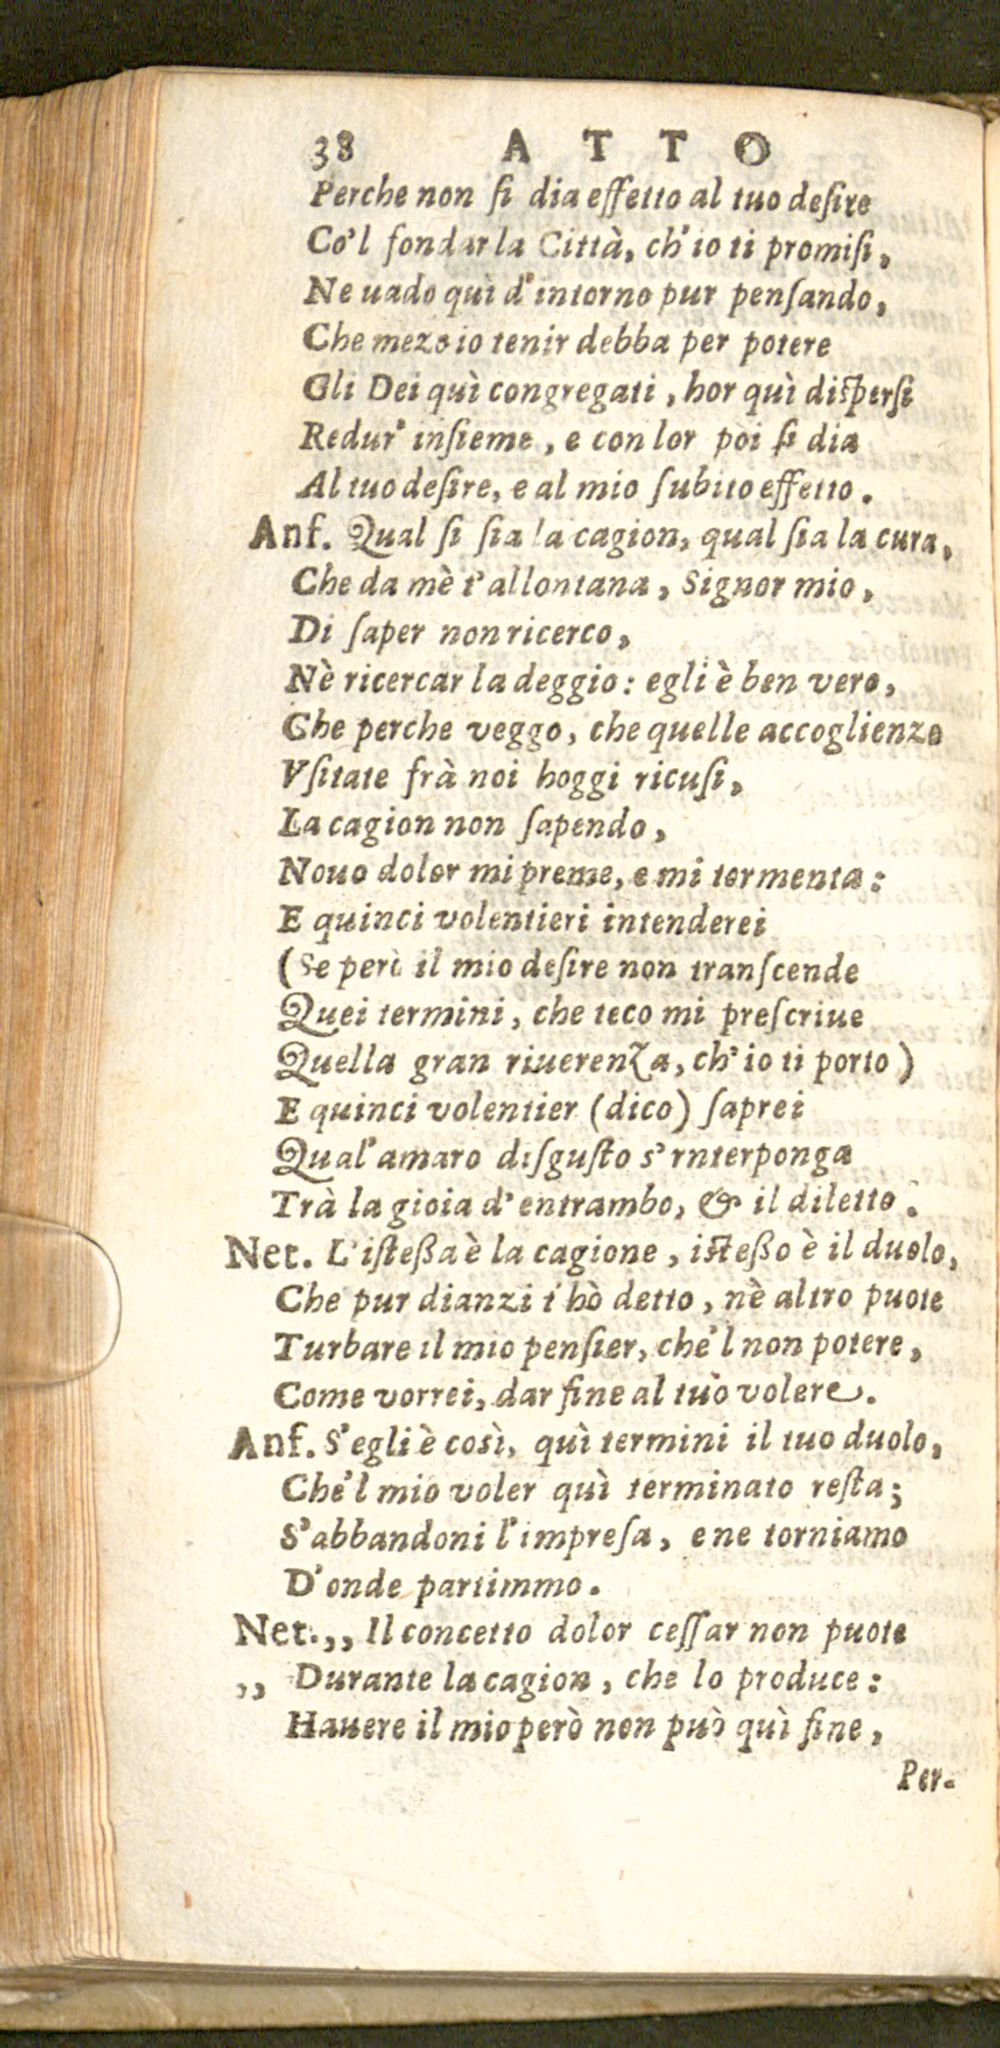 38 ATTO
Perche non ſi dia effetto al tuo deſire
Co'l fondar la Città, ch'io ti promiſi,
Ne uado quì d'intorno pur penſando,
Che mezo io tenir debba per potere
Gli Dei quì congregati, hor quì diſperſi
Redur' inſieme, e con lor poi ſi dia
Al tuo deſire, e al mio ſubito effetto.
Anf. Qual ſi ſia la cagion, qual ſia la cura,
Che da mè t'allontana, Signor mio,
Di ſaper non ricerco,
Nè ricercar la deggio: egli è ben vero,
Che perche veggo, che quelle accoglienze
Vſitate frà noi hoggi ricuſi,
La cagion non ſapendo,
Nouo dolor mi preme, e mi tormenta:
E quinci volentieri intenderei
(Se però il mio deſire non tranſcende
Quei termini, che teco mi preſcriue
Quella gran riuerenza, ch'io ti porto)
E quinci volentier (dico) ſaprei
Qual'amaro diſguſto s'rnterponga
Trà la gioia d'entrambo, & il diletto.
Net. L'iſteßa è la cagione, iſteßo è il duolo,
Che pur dianzi t'hò detto, nè altro puote
Turbare il mio penſier, che'l non potere,
Come vorrei, dar fine al tuo volere.
Anf. S'egli è così, quì termini il tuo duolo,
Che'l mio voler quì terminato reſta;
S'abbandoni l'impreſa, e ne torniamo
D'onde partimmo.
Net.,, Il concetto dolor ceſſar non puote
,, Durante la cagion, che lo produce:
Hauere il mio però non può quì fine,
Per-